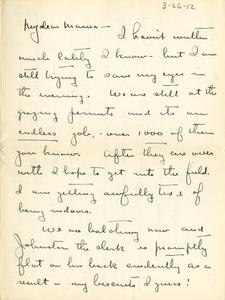 3-26-12
My dear Mama—
I havn't written
much lately I know - but I am
still trying to save my eyes in
the evening. We are still at the
grazing permits and its an
endless job, - over 1000 of them
you know. After they are over
with I hope to get into the field.
I am getting awfully tired of
being indoors.
We are batching now and
Johnston the clerk is promptly
flat on his back evidently as a
result - my biscuits I guess!